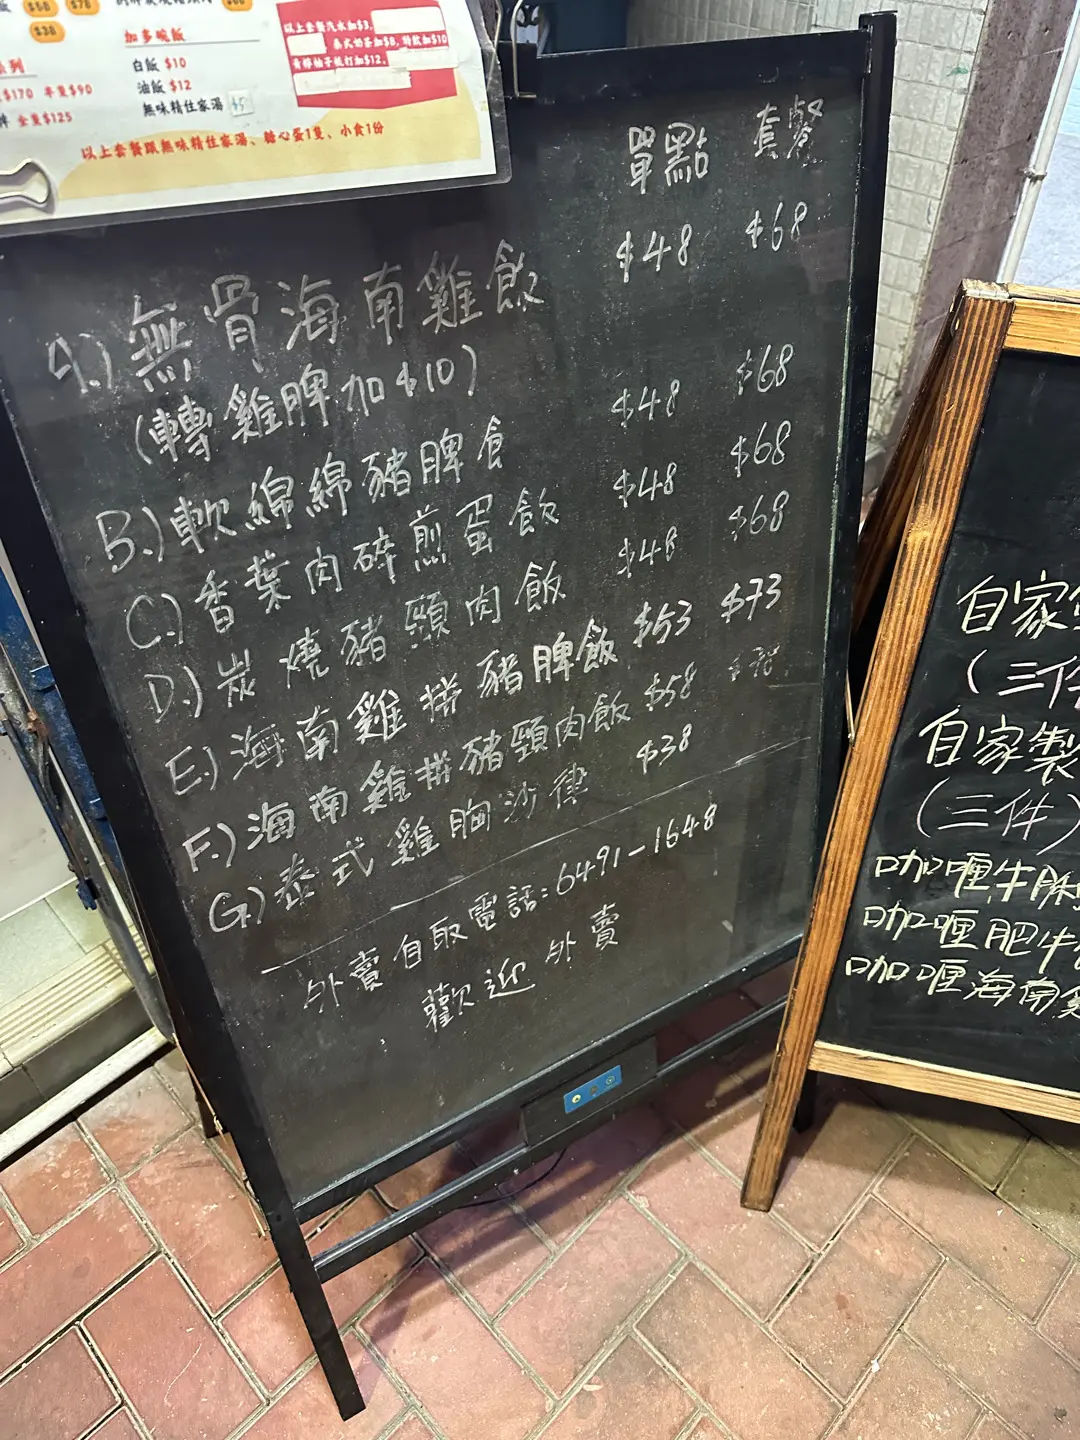 飯 $58 $78
$38
加多碗飯
白飯 $10
油飯 $12
無味精住家湯 $5
系列
$170 半隻$90
全隻$125
以上套餐汽水加$3,
泰式奶茶加$8, 特飲加$10
青檸柚子梳打加$12,
以上套餐跟無味精住家湯、糖心蛋1隻、小食1份
單點 套餐
A.) 無骨海南雞飯 $48 $68
(轉雞脾加$10)
B.) 軟綿綿豬脾飠 $48 $68
C.) 香葉肉碎煎蛋飯 $48 $68
D.) 炭燒豬頸肉飯 $48 $68
E.) 海南雞拼豬脾飯 $53 $73
F.) 海南雞拼豬頸肉飯 $58 $78
G.) 泰式雞胸沙律 $38
外賣自取電話:6491-1648
歡迎外賣
自家
(三件
自家製
(三件)
咖喱牛
咖喱肥牛
咖喱海南